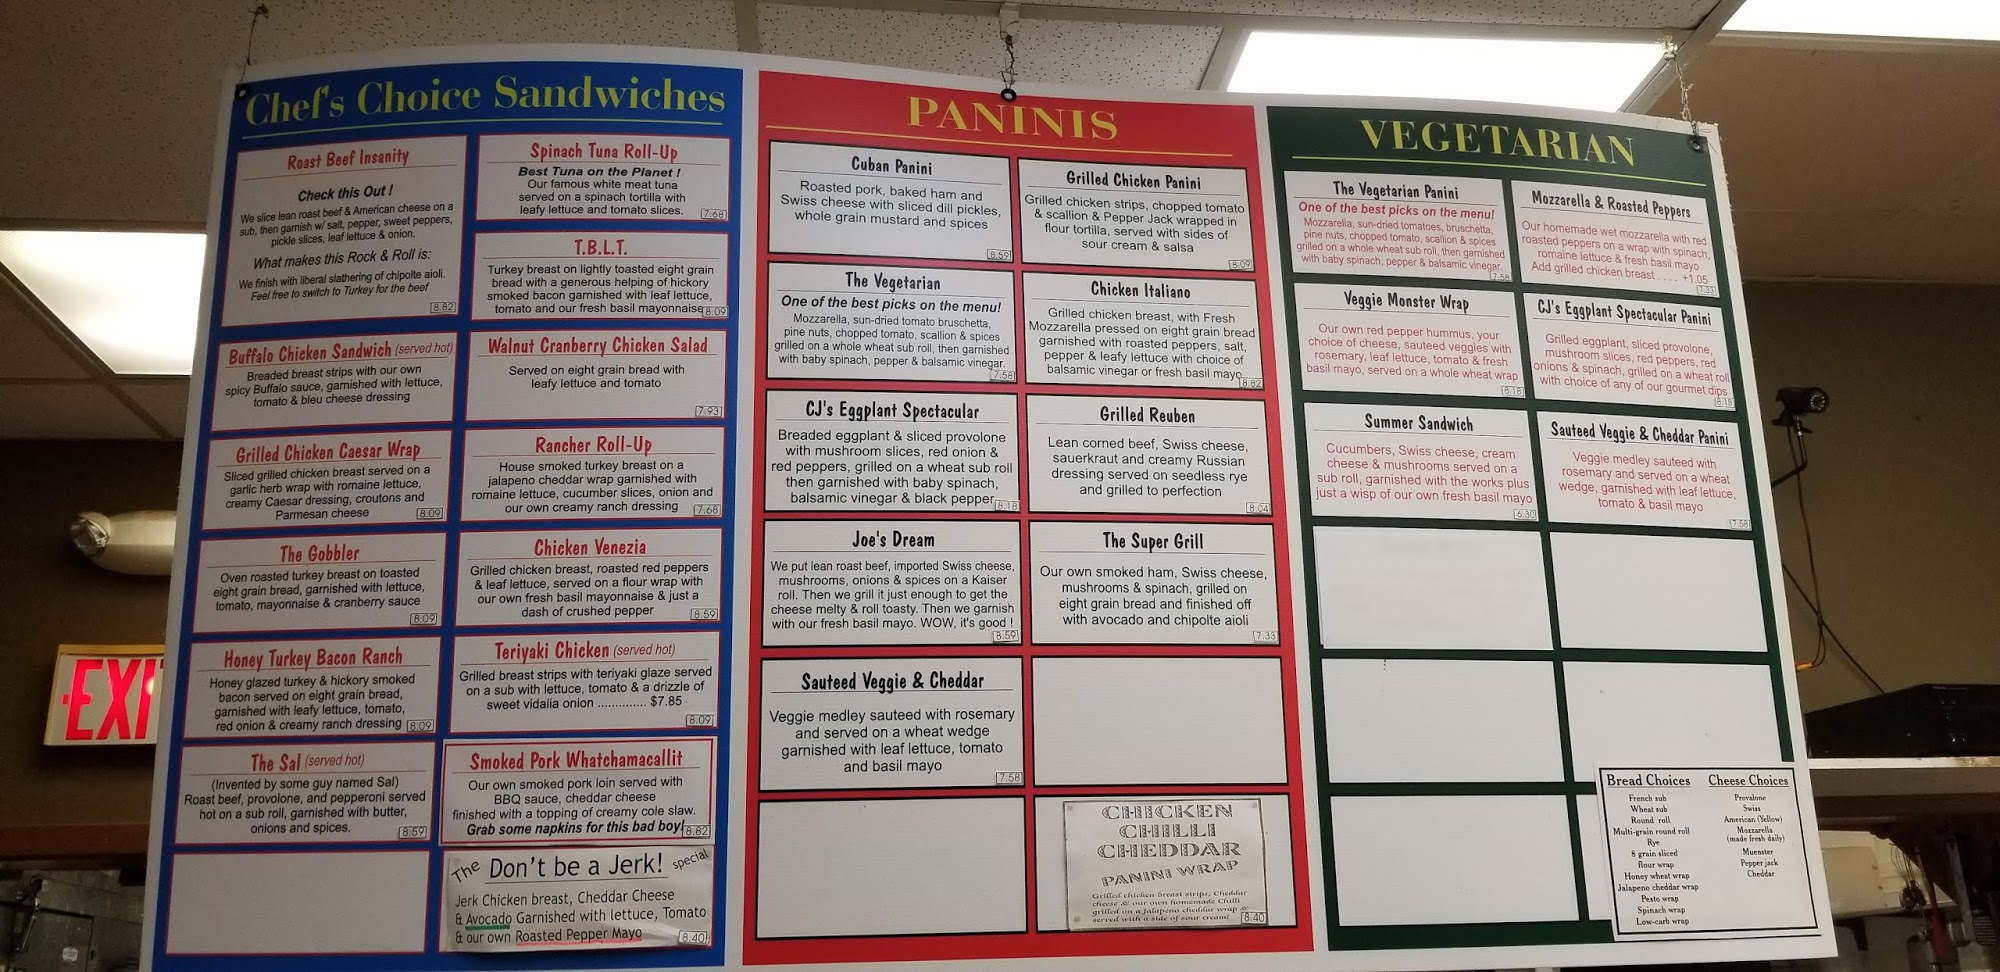 Chef's Choice Sandwiches
Roast Beef Insanity
Check this Out !
We slice lean roast beef & American cheese on a
sub, then garnish w/ salt, pepper, sweet peppers,
pickle slices, leaf lettuce & onion.
What makes this Rock & Roll is:
We finish with liberal slathering of chipolte aioli.
Feel free to switch to Turkey for the beef
8.82
Buffalo Chicken Sandwich (served hot)
Breaded breast strips with our own
spicy Buffalo sauce, garnished with lettuce,
tomato & bleu cheese dressing
Grilled Chicken Caesar Wrap
Sliced grilled chicken breast served on a
garlic herb wrap with romaine lettuce,
creamy Caesar dressing, croutons and
Parmesan cheese
8.09
The Gobbler
Oven roasted turkey breast on toasted
eight grain bread, garnished with lettuce,
tomato, mayonnaise & cranberry sauce
8.09
Honey Turkey Bacon Ranch
Honey glazed turkey & hickory smoked
bacon served on eight grain bread,
garnished with leafy lettuce, tomato,
red onion & creamy ranch dressing
8.09
The Sal (served hot)
(Invented by some guy named Sal)
Roast beef, provolone, and pepperoni served
hot on a sub roll, garnished with butter,
onions and spices.
8.59
Spinach Tuna Roll-Up
Best Tuna on the Planet !
Our famous white meat tuna
served on a spinach tortilla with
leafy lettuce and tomato slices.
7.68
T.B.L.T.
Turkey breast on lightly toasted eight grain
bread with a generous helping of hickory
smoked bacon garnished with leaf lettuce,
tomato and our fresh basil mayonnaise
8.09
Walnut Cranberry Chicken Salad
Served on eight grain bread with
leafy lettuce and tomato
7.93
Rancher Roll-Up
House smoked turkey breast on a
jalapeno cheddar wrap garnished with
romaine lettuce, cucumber slices, onion and
our own creamy ranch dressing
7.68
Chicken Venezia
Grilled chicken breast, roasted red peppers
& leaf lettuce, served on a flour wrap with
our own fresh basil mayonnaise & just a
dash of crushed pepper
8.59
Teriyaki Chicken (served hot)
Grilled breast strips with teriyaki glaze served
on a sub with lettuce, tomato & a drizzle of
sweet vidalia onion .............. $7.85
8.09
Smoked Pork Whatchamacallit
Our own smoked pork loin served with
BBQ sauce, cheddar cheese
finished with a topping of creamy cole slaw.
Grab some napkins for this bad boy!
8.82
The Don't be a Jerk! special
Jerk Chicken breast, Cheddar Cheese
& Avocado Garnished with lettuce, Tomato
& our own Roasted Pepper Mayo
8.40
PANINIS
Cuban Panini
Roasted pork, baked ham and
Swiss cheese with sliced dill pickles,
whole grain mustard and spices
8.59
The Vegetarian
One of the best picks on the menu!
Mozzarella, sun-dried tomato bruschetta,
pine nuts, chopped tomato, scallion & spices
grilled on a whole wheat sub roll, then garnished
with baby spinach, pepper & balsamic vinegar.
7.58
CJ's Eggplant Spectacular
Breaded eggplant & sliced provolone
with mushroom slices, red onion &
red peppers, grilled on a wheat sub roll
then garnished with baby spinach,
balsamic vinegar & black pepper
8.18
Joe's Dream
We put lean roast beef, imported Swiss cheese,
mushrooms, onions & spices on a Kaiser
roll. Then we grill it just enough to get the
cheese melty & roll toasty. Then we garnish
with our fresh basil mayo. WOW, it's good !
8.59
Sauteed Veggie & Cheddar
Veggie medley sauteed with rosemary
and served on a wheat wedge
garnished with leaf lettuce, tomato
and basil mayo
7.58
Grilled Chicken Panini
Grilled chicken strips, chopped tomato
& scallion & Pepper Jack wrapped in
flour tortilla, served with sides of
sour cream & salsa
8.09
Chicken Italiano
Grilled chicken breast, with Fresh
Mozzarella pressed on eight grain bread
garnished with roasted peppers, salt,
pepper & leafy lettuce with choice of
balsamic vinegar or fresh basil mayo
8.82
Grilled Reuben
Lean corned beef, Swiss cheese,
sauerkraut and creamy Russian
dressing served on seedless rye
and grilled to perfection
8.04
The Super Grill
Our own smoked ham, Swiss cheese,
mushrooms & spinach, grilled on
eight grain bread and finished off
with avocado and chipolte aioli
7.33
CHICKEN
CHILLI
CHEDDAR
PANINI WRAP
Grilled chicken breast strips, Cheddar
cheese & our own homemade Chilli
grilled on a Jalapeno cheddar wrap &
served with a side of sour cream!
8.40
VEGETARIAN
The Vegetarian Panini
One of the best picks on the menu!
Mozzarella, sun-dried tomatoes, bruschetta,
pine nuts, chopped tomato, scallion & spices
grilled on a whole wheat sub roll, then garnished
with baby spinach, pepper & balsamic vinegar.
7.58
Veggie Monster Wrap
Our own red pepper hummus, your
choice of cheese, sauteed veggies with
rosemary, leaf lettuce, tomato & fresh
basil mayo, served on a whole wheat wrap
8.18
Summer Sandwich
Cucumbers, Swiss cheese, cream
cheese & mushrooms served on a
sub roll, garnished with the works plus
just a wisp of our own fresh basil mayo
6.30
Mozzarella & Roasted Peppers
Our homemade wet mozzarella with red
roasted peppers on a wrap with spinach,
romaine lettuce & fresh basil mayo
Add grilled chicken breast . . . . +1.05
7.33
CJ's Eggplant Spectacular Panini
Grilled eggplant, sliced provolone,
mushroom slices, red peppers, red
onions & spinach, grilled on a wheat roll
with choice of any of our gourmet dips
8.18
Sauteed Veggie & Cheddar Panini
Veggie medley sauteed with
rosemary and served on a wheat
wedge, garnished with leaf lettuce,
tomato & basil mayo
7.58
Bread Choices
French sub
Wheat sub
Round roll
Multi-grain round roll
Rye
8 grain sliced
flour wrap
Honey wheat wrap
Jalapeno cheddar wrap
Pesto wrap
Spinach wrap
Low-carb wrap
Cheese Choices
Provalone
Swiss
American (Yellow)
Mozzarella
(made fresh daily)
Muenster
Pepper jack
Cheddar
EXI